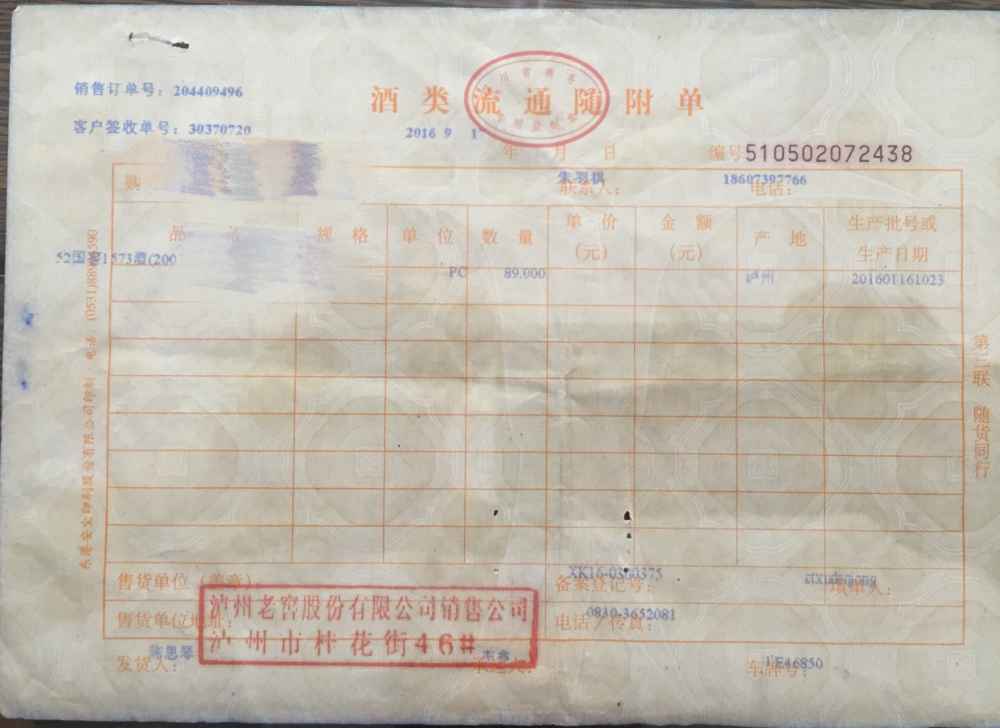 销售订单号：204409496
酒类流通随附单
客户签收单号：30370720
2016 9 1
年 月 日
编号510502072438
购
联系人：
电话：18607397766
品 规格 单位 数量 单价（元） 金额（元） 产地 生产批号或生产日期
52国窖1573酒(200
PC 89.000 泸州 201601161023
第二联 随货同行
售货单位（盖章）：
备案登记号：XK16-0360375
填单人：
售货单位地址：
电话/传真：0830-3652081
泸州老窖股份有限公司销售公司
泸州市桂花街46#
发货人：
承运人：
车牌号：LE46850